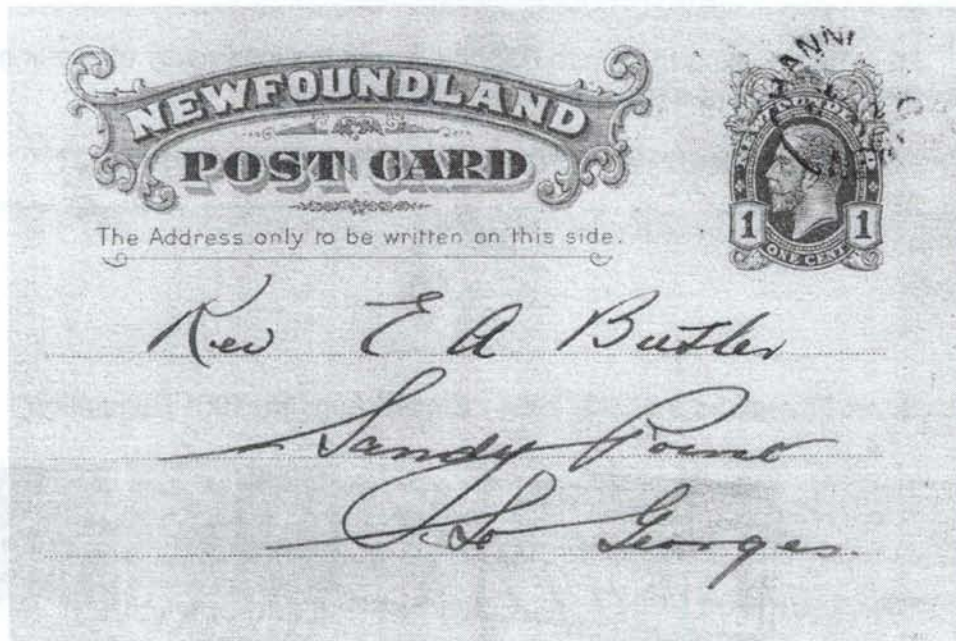 NEWFOUNDLAND
POST CARD
The Address only to be written on this side.
1 1
ONE CENT
Rev E A Butler
Sandy Point
Georges.